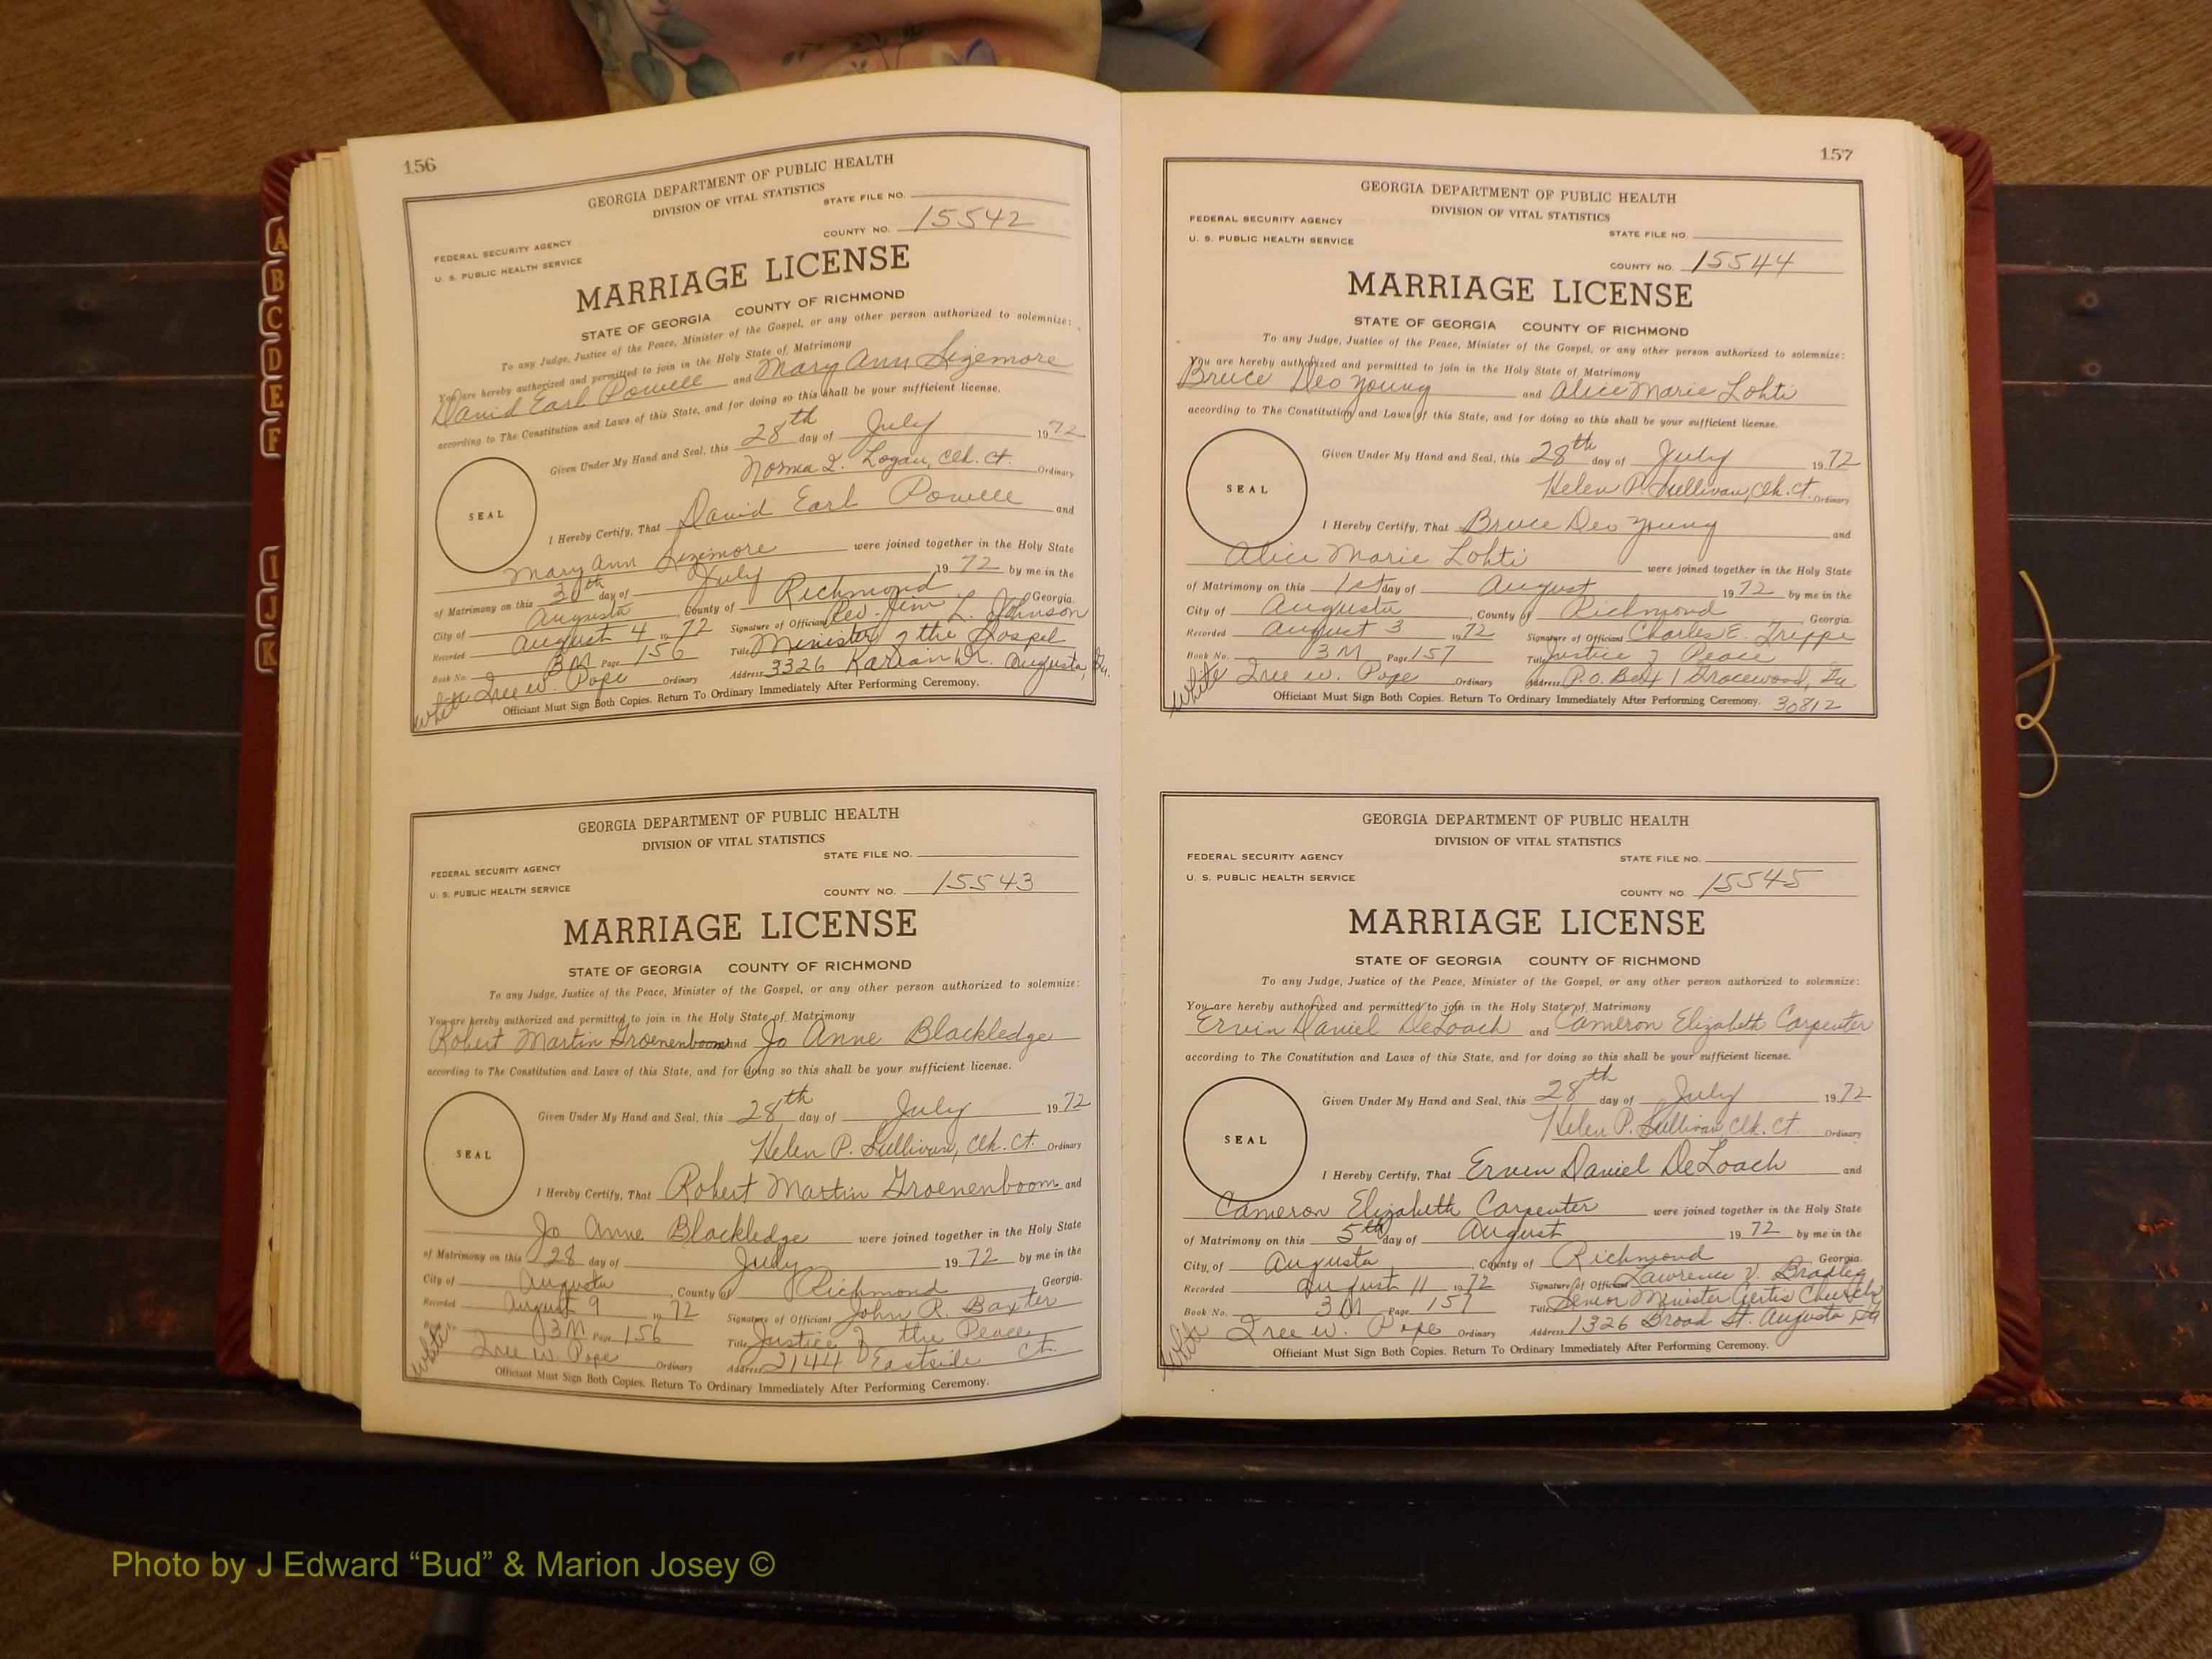 A
B
C
D
E
F
I
J
K
156
GEORGIA DEPARTMENT OF PUBLIC HEALTH
DIVISION OF VITAL STATISTICS
STATE FILE NO.
FEDERAL SECURITY AGENCY
U. S. PUBLIC HEALTH SERVICE
COUNTY NO. 15542
MARRIAGE LICENSE
STATE OF GEORGIA COUNTY OF RICHMOND
To any Judge, Justice of the Peace, Minister of the Gospel, or any other person authorized to solemnize:
You are hereby authorized and permitted to join in the Holy State of Matrimony
David Earl Powell and Mary Ann Sizemore
according to The Constitution and Laws of this State, and for doing so this shall be your sufficient license.
Given Under My Hand and Seal, this 28th day of July 1972
Norma L. Logan, Clk. Ct. Ordinary
SEAL
I Hereby Certify, That David Earl Powell and
Mary Ann Sizemore were joined together in the Holy State
of Matrimony on this 30th day of July 1972 by me in the
City of Augusta, County of Richmond Georgia.
Recorded August 4 1972 Signature of Official Rev. Jim L. Johnson
Book No. 3M Page 156 Title Minister of the Gospel
White Ordinary Address 3326 Augusta, Ga.
W. Pope
Officiant Must Sign Both Copies. Return To Ordinary Immediately After Performing Ceremony.
GEORGIA DEPARTMENT OF PUBLIC HEALTH
DIVISION OF VITAL STATISTICS
STATE FILE NO.
FEDERAL SECURITY AGENCY
U. S. PUBLIC HEALTH SERVICE
COUNTY NO. 15543
MARRIAGE LICENSE
STATE OF GEORGIA COUNTY OF RICHMOND
To any Judge, Justice of the Peace, Minister of the Gospel, or any other person authorized to solemnize:
You are hereby authorized and permitted to join in the Holy State of Matrimony
Robert Martin Groenenboom and Jo Anne Blackledge
according to The Constitution and Laws of this State, and for doing so this shall be your sufficient license.
Given Under My Hand and Seal, this 28th day of July 1972
Helen P. Sullivan, Clk. Ct. Ordinary
SEAL
I Hereby Certify, That Robert Martin Groenenboom and
Jo Anne Blackledge were joined together in the Holy State
of Matrimony on this 28 day of July 1972 by me in the
City of Augusta, County of Richmond Georgia.
Recorded August 9 1972 Signature of Officiant John R. Baxter
Book No. 3M Page 156 Title Justice of the Peace
White W. Pope Ordinary Address 2144 Eastside Ct.
Officiant Must Sign Both Copies. Return To Ordinary Immediately After Performing Ceremony.
157
GEORGIA DEPARTMENT OF PUBLIC HEALTH
DIVISION OF VITAL STATISTICS
FEDERAL SECURITY AGENCY
STATE FILE NO.
U. S. PUBLIC HEALTH SERVICE
COUNTY NO. 15544
MARRIAGE LICENSE
STATE OF GEORGIA COUNTY OF RICHMOND
To any Judge, Justice of the Peace, Minister of the Gospel, or any other person authorized to solemnize:
You are hereby authorized and permitted to join in the Holy State of Matrimony
Bruce Deo Young and Alice Marie Lohti
according to The Constitution and Laws of this State, and for doing so this shall be your sufficient license.
Given Under My Hand and Seal, this 28th day of July 1972
Helen P. Sullivan, Clk. Ct. Ordinary
SEAL
I Hereby Certify, That Bruce Deo Young and
Alice Marie Lohti were joined together in the Holy State
of Matrimony on this 1st day of August 1972 by me in the
City of Augusta, County of Richmond Georgia.
Recorded August 3 1972 Signature of Officiant Charles E. Trippe
Book No. 3M Page 157 Title Justice of Peace
White W. Pope Ordinary Address P.O. Box 1 Gracewood, Ga
Officiant Must Sign Both Copies. Return To Ordinary Immediately After Performing Ceremony. 30812
GEORGIA DEPARTMENT OF PUBLIC HEALTH
DIVISION OF VITAL STATISTICS
FEDERAL SECURITY AGENCY
STATE FILE NO.
U. S. PUBLIC HEALTH SERVICE
COUNTY NO. 15545
MARRIAGE LICENSE
STATE OF GEORGIA COUNTY OF RICHMOND
To any Judge, Justice of the Peace, Minister of the Gospel, or any other person authorized to solemnize:
You are hereby authorized and permitted to join in the Holy State of Matrimony
Ervin Daniel DeLoach and Cameron Elizabeth Carpenter
according to The Constitution and Laws of this State, and for doing so this shall be your sufficient license.
Given Under My Hand and Seal, this 28th day of July 1972
Helen P. Sullivan Clk. Ct. Ordinary
SEAL
I Hereby Certify, That Ervin Daniel DeLoach and
Cameron Elizabeth Carpenter were joined together in the Holy State
of Matrimony on this 5th day of August 1972 by me in the
City of Augusta, County of Richmond Georgia.
Recorded August 11 1972 Signature of Officiant Lawrence V. Bradley
Book No. 3M Page 157 Title Senior Minister Curtis Church
White W. Pope Ordinary Address 1326 Broad St. Augusta Ga
Officiant Must Sign Both Copies. Return To Ordinary Immediately After Performing Ceremony.
Photo by J Edward “Bud” & Marion Josey ©